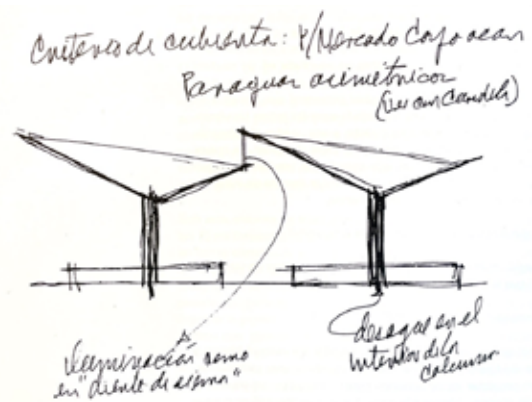 Criterio de cubierta: p/Mercado Coyoacan
Paraguas asimétricos
(ver con Candela)
iluminación como
en "diente de sierra"
desague en el
interior de la
columna